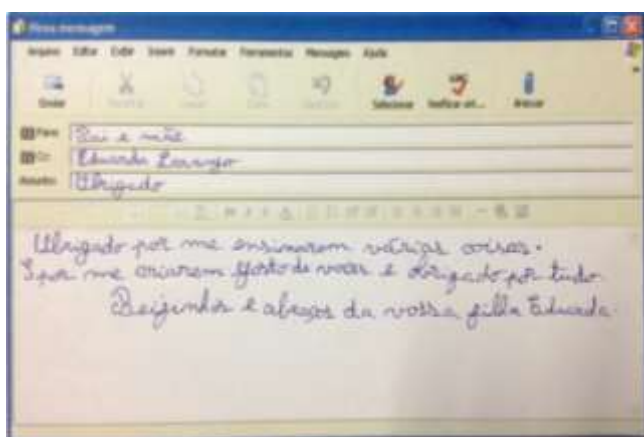 Nova mensagem
Arquivo Editar Exibir Inserir Formatar Ferramentas Mensagem Ajuda
Enviar Selecionar Verificar ort... Anexar
Para: Pai e mãe
Cc: Eduarda
Assunto: Obrigado
Obrigado por me ensinarem várias coisas.
E por me criarem gosto de voces e obrigado por tudo
Beijinhos e abraços da vossa filha Eduarda.